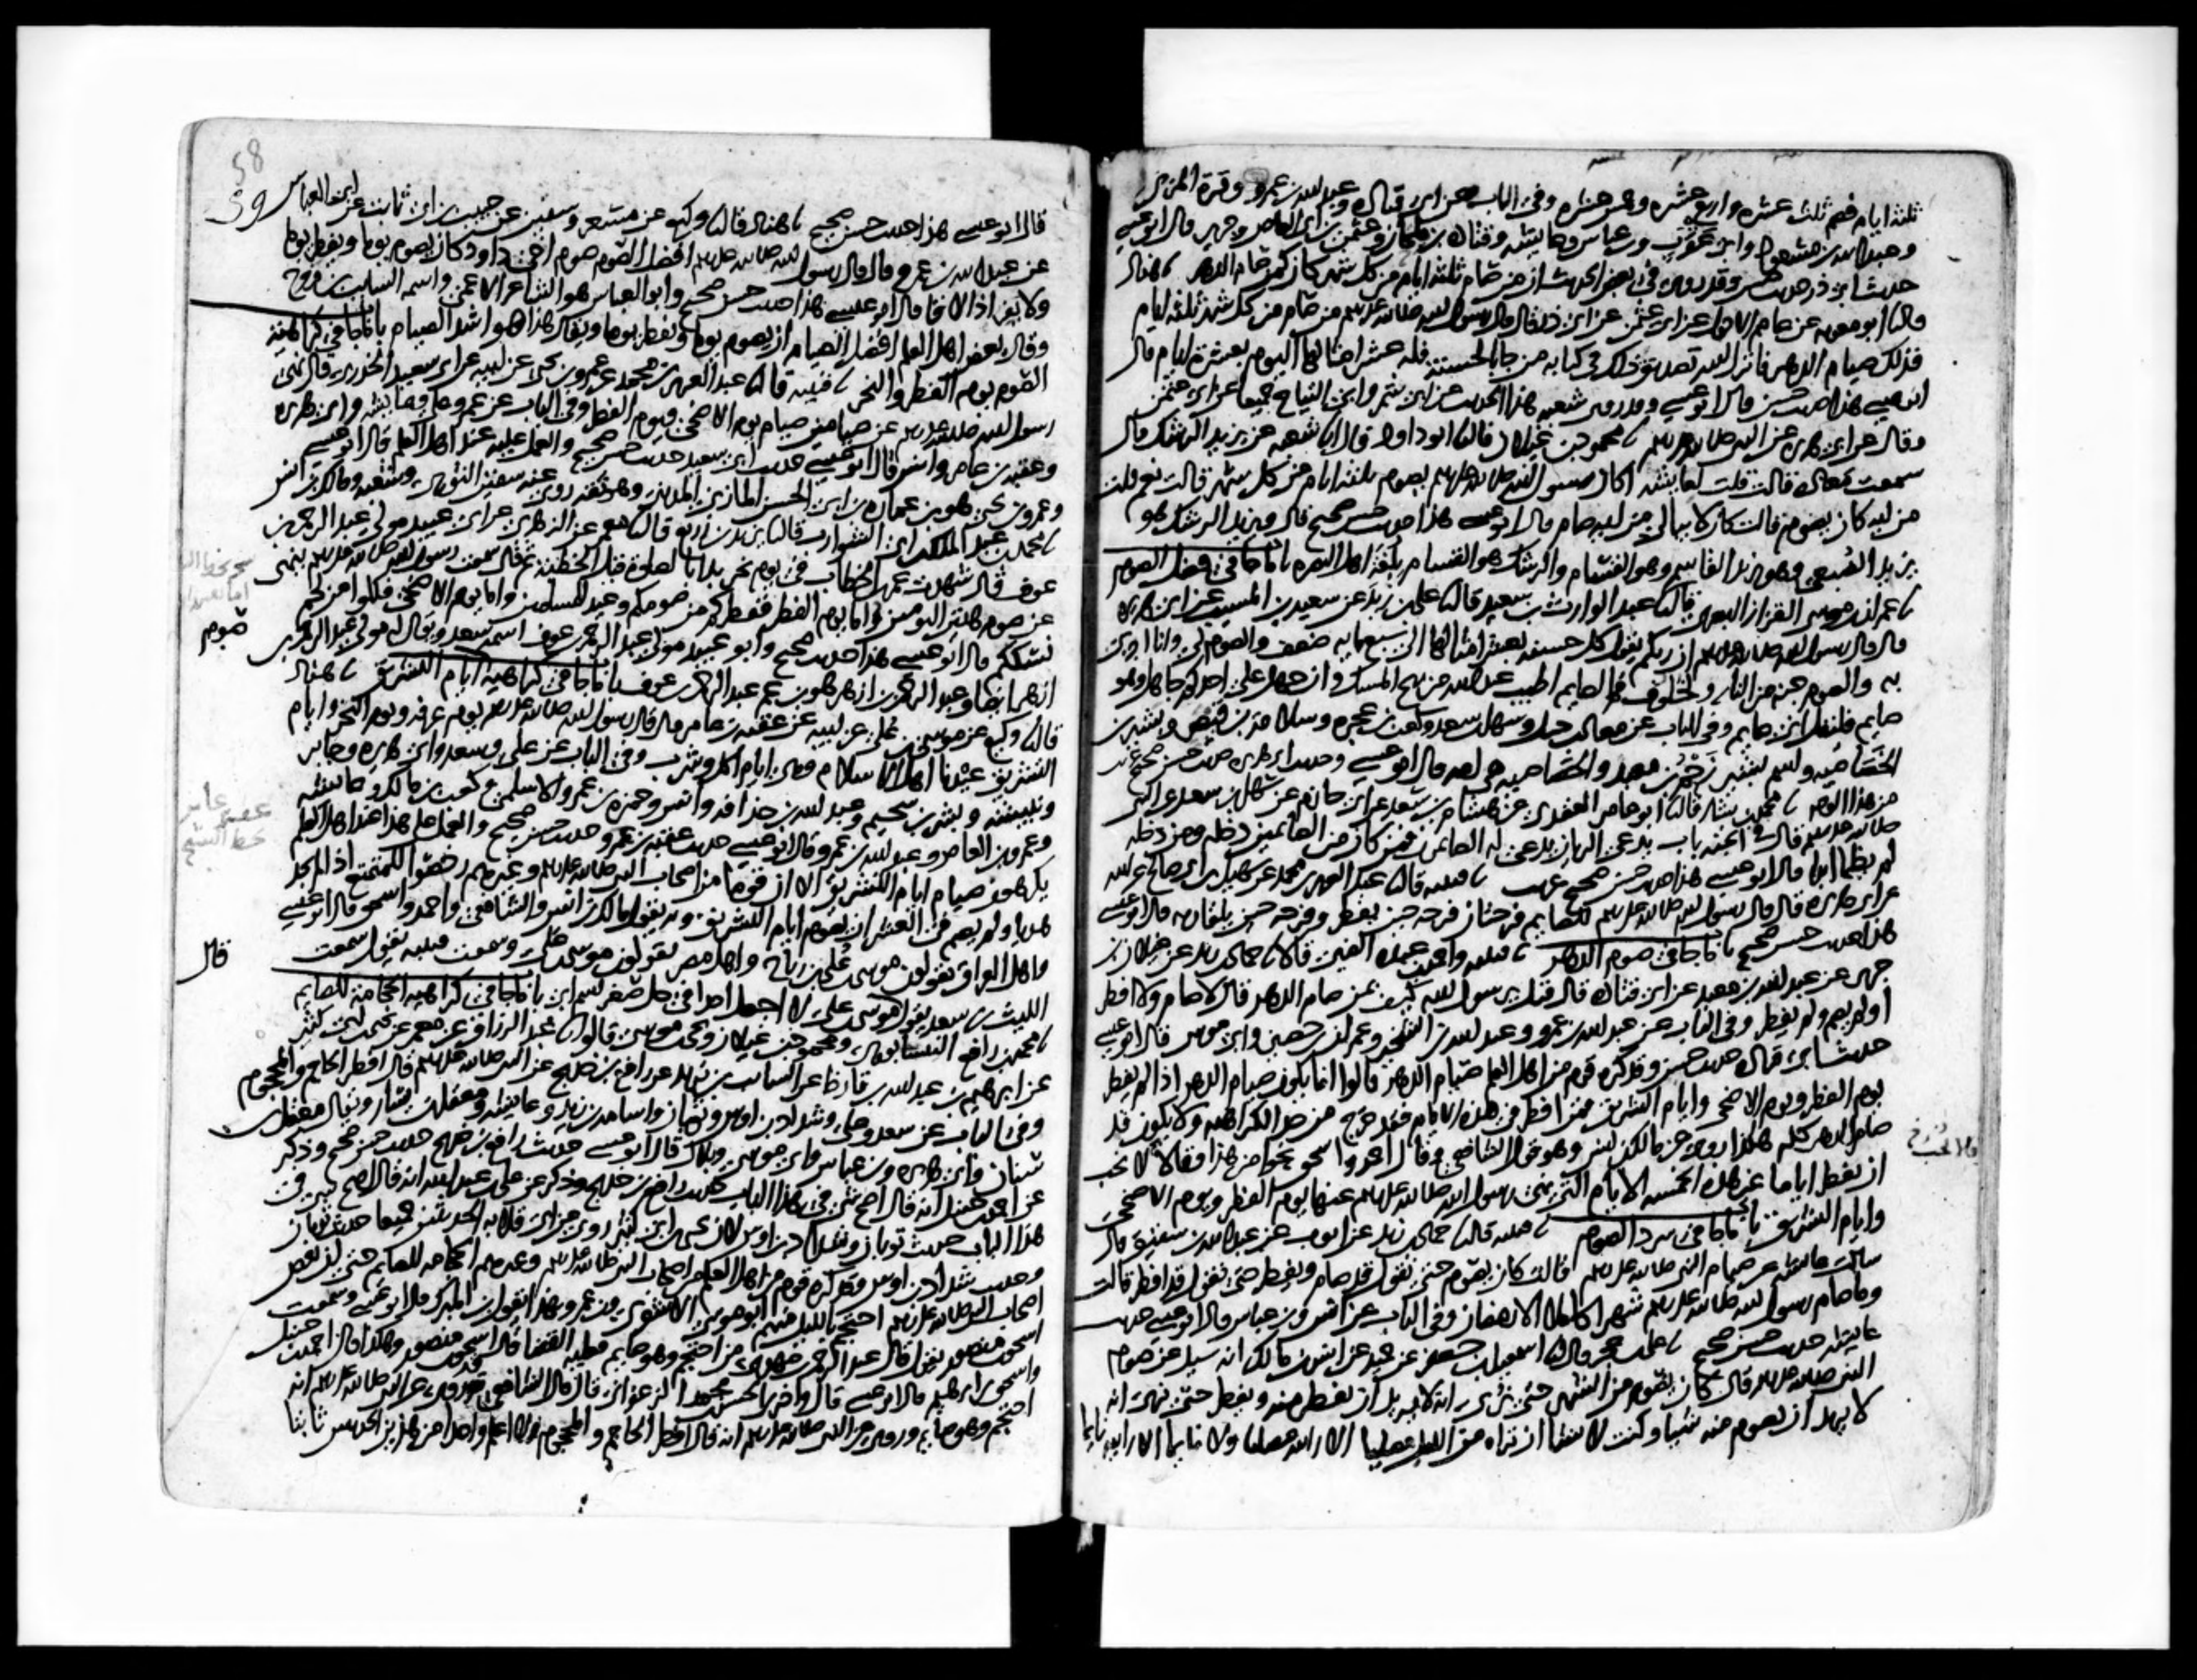 ثلثة ايام فصم ثلث عشره واربع عشره وخمس عشره وفي الباب عن ابي قتاده وعبد الله بن عمرو وقرة المزني
وعبد الله بن مسعود وابي عقرب وبن عباس وعايشه وقتاده بن ملحان وعثمن بن ابي العاص وجرير قال ابو عيسى
حديث ابي ذر حديث حسن وقد روي في بعض الحديث ان من صام ثلثة ايام من كل شهر كان كمن صام الدهر هناد
قالنا ابو معويه عن عاصم الاحول عن ابي عثمن عن ابي ذر قال قال رسول الله صلى الله عليه وسلم من صام من كل شهر ثلثة ايام
فذلك صيام الدهر فانزل الله تصديق ذلك في كتابه من جا بالحسنة فله عشر امثالها اليوم بعشرة ايام قال
ابو عيسى هذا حديث حسن قال ابو عيسى وقد روى شعبه هذا الحديث عن ابي شمر وابي التياح جميعا عن ابي عثمن
وقال عن ابي هريره عن النبي صلى الله عليه وسلم محمود بن غيلان قالنا ابو داود قال انا شعبه عن يزيد الرشك قال
سمعت معاذه قالت قلت لعايشه اكان رسول الله صلى الله عليه وسلم يصوم ثلثة ايام من كل شهر قالت نعم قلت
من ايه كان يصوم قالت كان لا يبالي من ايه صام قال ابو عيسى هذا حديث حسن صحيح قال ويزيد الرشك هو
يزيد الضبعي وهو يزيد القاسم وهو القسام والرشك هو القسام بلغة اهل البصره باب ما جا في فضل الصوم
عمران بن موسى القزاز البصري قالنا عبد الوارث بن سعيد قالنا علي بن زيد عن سعيد بن المسيب عن ابي هريره
قال قال رسول الله صلى الله عليه وسلم ان ربكم يقول كل حسنة بعشر امثالها الى سبع مايه ضعف والصوم لي وانا اجزي
به والصوم جنه من النار ولخلوف فم الصايم اطيب عند الله من ريح المسك وان جهل على احدكم جاهل وهو
صايم فليقل اني صايم وفي الباب عن معاذ بن جبل وسهل بن سعد وكعب بن عجره وسلامة بن قيصر وبشير بن
الخصاصيه واسم بشير زحم بن معبد والخصاصيه هي امه قال ابو عيسى وحديث ابي هريره حديث حسن صحيح غريب
من هذا الوجه محمد بن بشار قالنا ابو عامر العقدي عن هشام بن سعد عن ابي حازم عن سهل بن سعد عن النبي
صلى الله عليه وسلم قال في الجنة باب يدعى الريان يدعى له الصايمون فمن كان من الصايمين دخله ومن دخله
لم يظما ابدا قال ابو عيسى هذا حديث حسن صحيح غريب قتيبه قالنا عبد العزيز بن محمد عن سهيل بن ابي صالح عن ابيه
عن ابي هريره قال قال رسول الله صلى الله عليه وسلم للصايم فرحتان فرحه حين يفطر وفرحه حين يلقا ربه قال ابو عيسى
هذا حديث حسن صحيح باب ما جا في صوم الدهر قتيبه واحمد بن عبده الضبي قالا حماد بن زيد عن غيلان بن
جرير عن عبد الله بن معبد عن ابي قتاده قال قيل يرسول الله كيف بمن صام الدهر قال لا صام ولا افطر
او لم يصم ولم يفطر وفي الباب عن عبد الله بن عمرو وعبد الله بن الشخير وعمران بن حصين وابي موسى قال ابو عيسى
حديث ابي قتاده حديث حسن وقد كره قوم من اهل العلم صيام الدهر قالوا انما يكون صيام الدهر اذا لم يفطر
يوم الفطر ويوم الاضحى وايام التشريق فمن افطر في هذه الايام فقد خرج من حد الكراهيه ولا يكون قد
صام الدهر كله هكذا روي عن مالك بن انس وهو قول الشافعي وقال احمد واسحق نحوا من هذا وقالا لا يجب
ان يفطر اياما غير هذه الخمسه الايام التي نهى رسول الله صلى الله عليه وسلم عنها يوم الفطر ويوم الاضحى
وايام التشريق باب ما جا في سرد الصوم قتيبه قالنا حماد بن زيد عن ايوب عن عبد الله بن شقيق قال
سالت عايشه عن صيام النبي صلى الله عليه وسلم قالت كان يصوم حتى نقول قد صام ويفطر حتى نقول قد افطر قالت
وما صام رسول الله صلى الله عليه وسلم شهرا كاملا الا رمضان وفي الباب عن انس وبن عباس قال ابو عيسى حديث
عايشه حديث حسن صحيح علي بن حجر قالنا اسمعيل بن جعفر عن حميد عن انس بن مالك انه سيل عن صوم
النبي صلى الله عليه وسلم قال كان يصوم من الشهر حتى نرى انه لا يريد ان يفطر منه ويفطر حتى نرى انه
لا يريد ان يصوم منه شيا وكنت لا تشا ان تراه من الليل مصليا الا رايته مصليا ولا نايما الا رايته نايما
58
59
قال ابو عيسى هذا حديث حسن صحيح هناد قالنا وكيع عن مسعر وسفين عن حبيب بن ابي ثابت عن ابي العباس
عن عبد الله بن عمرو قال قال رسول الله صلى الله عليه وسلم افضل الصوم صوم اخي داود كان يصوم يوما ويفطر يوما
ولا يفر اذا لاقا قال ابو عيسى هذا حديث حسن صحيح وابو العباس هو الشاعر الاعمى واسمه السايب بن فروخ
وقال بعض اهل العلم افضل الصيام ان يصوم يوما ويفطر يوما ويقال هذا هو اشد الصيام باب ما جا في كراهية
الصوم يوم الفطر والنحر قتيبه قالنا عبد العزيز بن محمد عن عمرو بن يحيى عن ابيه عن ابي سعيد الخدري قال نهى
رسول الله صلى الله عليه وسلم عن صيامين صيام يوم الاضحى ويوم الفطر وفي الباب عن عمر وعلي وعايشه وابي هريره
وعقبه بن عامر وانس قال ابو عيسى حديث ابي سعيد حديث حسن صحيح والعمل عليه عند اهل العلم قال ابو عيسى
وعمرو بن يحيى هو بن عماره بن ابي الحسن المازني المديني وهو ثقه روى عنه سفين الثوري وشعبه ومالك بن انس
محمد بن عبد الملك بن ابي الشوارب قالنا يزيد بن زريع قالنا معمر عن الزهري عن ابي عبيد مولى عبد الرحمن بن
عوف قال شهدت عمر بن الخطاب في يوم نحر بدا بالصلوة قبل الخطبه ثم قال سمعت رسول الله صلى الله عليه وسلم ينهى
عن صوم هذين اليومين واما يوم الفطر ففطركم من صومكم وعيد للمسلمين واما يوم الاضحى فكلوا من لحم
نسككم قال ابو عيسى هذا حديث صحيح وابو عبيد مولى عبد الرحمن بن عوف اسمه سعد ويقال له مولى عبد الرحمن بن
ازهر ايضا وعبد الرحمن بن ازهر هو بن عم عبد الرحمن بن عوف باب ما جا في كراهية ايام التشريق هناد
قالنا وكيع عن موسى بن علي عن ابيه عن عقبه بن عامر قال قال رسول الله صلى الله عليه وسلم يوم عرفه ويوم النحر وايام
التشريق عيدنا اهل الاسلام وهي ايام اكل وشرب وفي الباب عن علي وسعد وابي هريره وجابر
ونبيشه وبشر بن سحيم وعبد الله بن حذافه وانس وحمزه بن عمرو الاسلمي وكعب بن مالك وعايشه
وعمرو بن العاص وعبد الله بن عمرو قال ابو عيسى حديث عقبه بن عامر حديث حسن صحيح والعمل على هذا عند اهل العلم
يكرهون صيام ايام التشريق الا ان قوما من اصحاب النبي صلى الله عليه وسلم وغيرهم رخصوا للمتمتع اذا لم يجد
هديا ولم يصم في العشر ان يصوم ايام التشريق وبه يقول مالك بن انس والشافعي واحمد واسحق قال ابو عيسى
واهل العراق يقولون موسى بن علي بن رباح واهل مصر يقولون موسى بن علي وسمعت قتيبه يقول سمعت
الليث بن سعد يقول قال موسى بن علي لا اجعل احدا في حل صغر اسم ابي باب ما جا في كراهية الحجامة للصايم
محمد بن رافع النيسابوري ومحمود بن غيلان ويحيى بن موسى قالوا انا عبد الرزاق عن معمر عن يحيى بن ابي كثير
عن ابرهيم بن عبد الله بن قارظ عن السايب بن يزيد عن رافع بن خديج عن النبي صلى الله عليه وسلم قال افطر الحاجم والمحجوم
وفي الباب عن سعد وعلي وشداد بن اوس وثوبان واسامه بن زيد وعايشه ومعقل بن يسار ويقال معقل بن
سنان وابي هريره وبن عباس وابي موسى وبلال قال ابو عيسى حديث رافع بن خديج حديث حسن صحيح وذكر
عن احمد بن حنبل انه قال اصح شي في هذا الباب حديث رافع بن خديج وذكر عن علي بن عبد الله انه قال اصح شي في
هذا الباب حديث ثوبان وشداد بن اوس لان يحيى بن ابي كثير روى عن ابي قلابه الحديثين جميعا حديث ثوبان
وحديث شداد بن اوس وقد كره قوم من اهل العلم من اصحاب النبي صلى الله عليه وسلم وغيرهم الحجامه للصايم حتى ان بعض
اصحاب النبي صلى الله عليه وسلم احتجم بالليل منهم ابو موسى الاشعري وبن عمر وبهذا يقول بن المبارك قال ابو عيسى وسمعت
اسحق بن منصور يقول قال عبد الرحمن بن مهدي من احتجم وهو صايم فعليه القضا قال اسحق بن منصور وهكذا قال احمد بن حنبل
واسحق بن ابرهيم قال ابو عيسى قال واخبرني الحسن بن محمد الزعفراني قال قال الشافعي قد روي عن النبي صلى الله عليه وسلم انه
احتجم وهو صايم وروي عن النبي صلى الله عليه وسلم انه قال افطر الحاجم والمحجوم ولا اعلم واحدا من هذين الحديثين ثابتا
صوم
قال